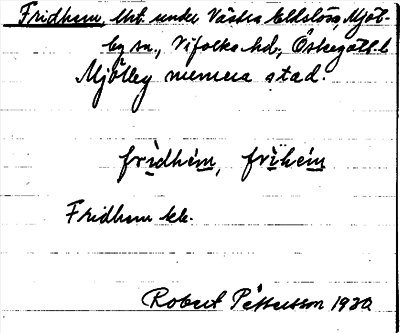 Fridhem, lht. under Västra Eldslösa, Mjöl-
by sn., Vifolka hd., Östergötl. l.
Mjölby numera stad.
fridhem, frihem
Fridhem
Robert Pettersson 1930